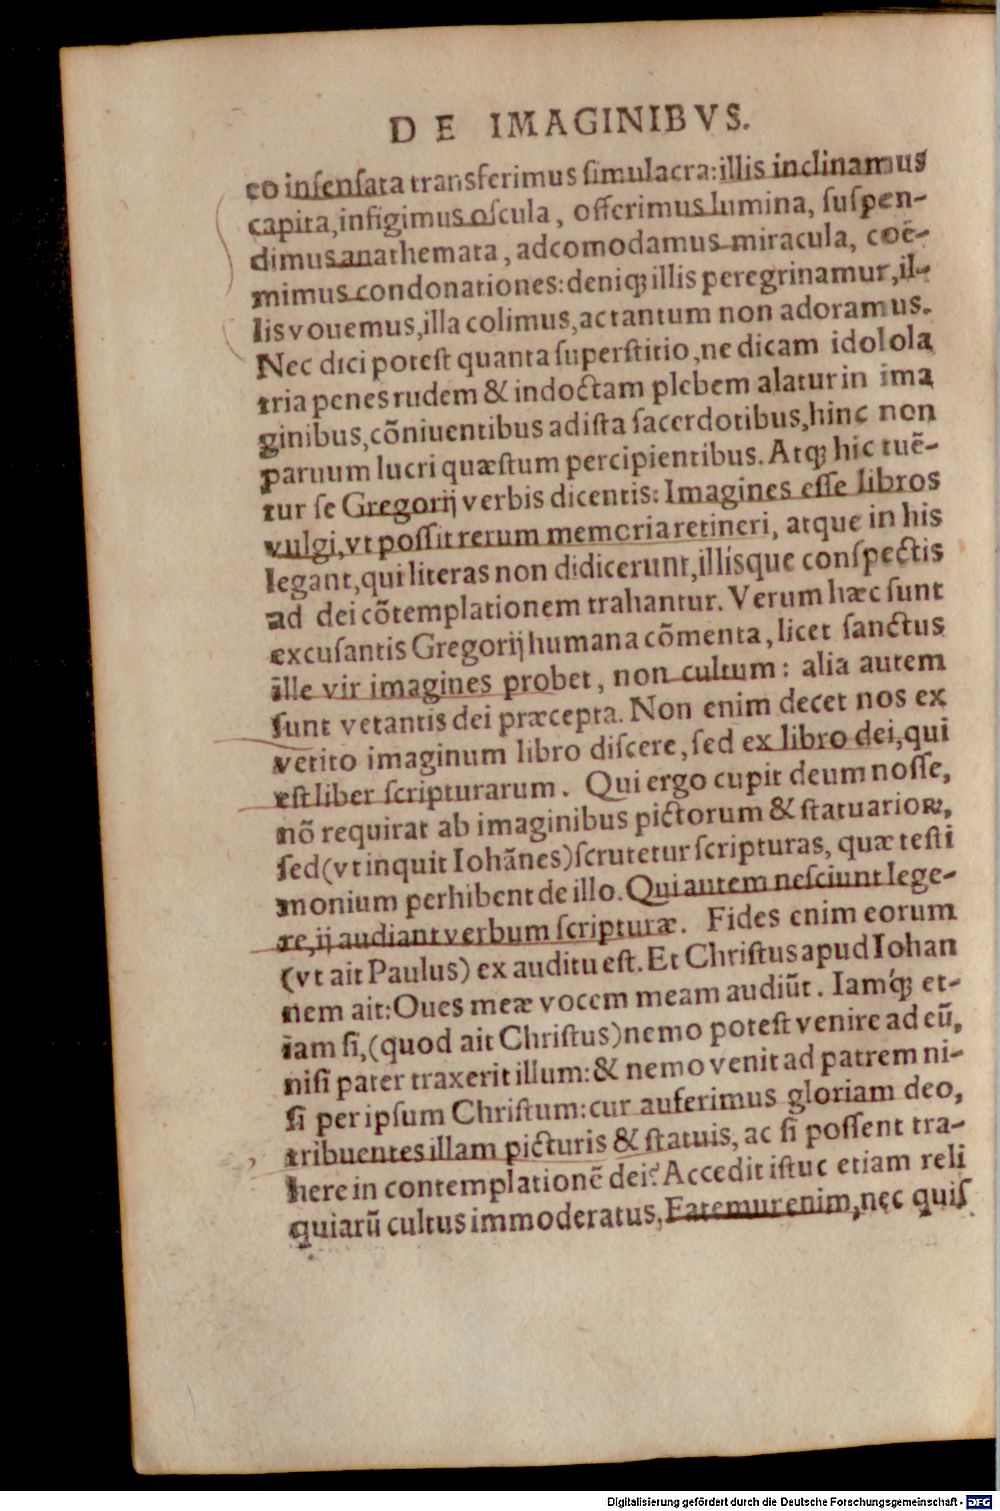 DE IMAGINIBVS.
eo insensata transferimus simulacra: illis inclinamus
capita, infigimus oscula, offerimus lumina, suspen-
dimus anathemata, adcomodamus miracula, coē-
mimus condonationes: deniqꝫ illis peregrinamur, il-
lis vouemus, illa colimus, ac tantum non adoramus.
Nec dici potest quanta superstitio, ne dicam idolola
tria penes rudem & indoctam plebem alatur in ima
ginibus, cōniuentibus ad ista sacerdotibus, hinc non
paruum lucri quæstum percipientibus. Atqꝫ hic tuē-
tur se Gregorij verbis dicentis: Imagines esse libros
vulgi, vt possit rerum memoria retineri, atque in his
legant, qui literas non didicerunt, illísque conspectis
ad dei cōtemplationem trahantur. Verum hæc sunt
excusantis Gregorij humana cōmenta, licet sanctus
ille vir imagines probet, non cultum: alia autem
sunt vetantis dei præcepta. Non enim decet nos ex
vetito imaginum libro discere, sed ex libro dei, qui
est liber scripturarum. Qui ergo cupit deum nosse,
nō requirat ab imaginibus pictorum & statuarioꝝ,
sed (vt inquit Iohānes) scrutetur scripturas, quæ testi
monium perhibent de illo. Qui autem nesciunt lege-
re, ij audiant verbum scripturæ. Fides enim eorum
(vt ait Paulus) ex auditu est. Et Christus apud Iohan
nem ait: Oues meæ vocem meam audiūt. Iamq́ꝫ et-
iam si, (quod ait Christus) nemo potest venire ad eū,
nisi pater traxerit illum: & nemo venit ad patrem ni-
si per ipsum Christum: cur auferimus gloriam deo,
tribuentes illam picturis & statuis, ac si possent tra-
here in contemplationē dei? Accedit istuc etiam reli
quiarū cultus immoderatus, Fatemur enim, nec quis
Digitalisierung gefördert durch die Deutsche Forschungsgemeinschaft - DFG